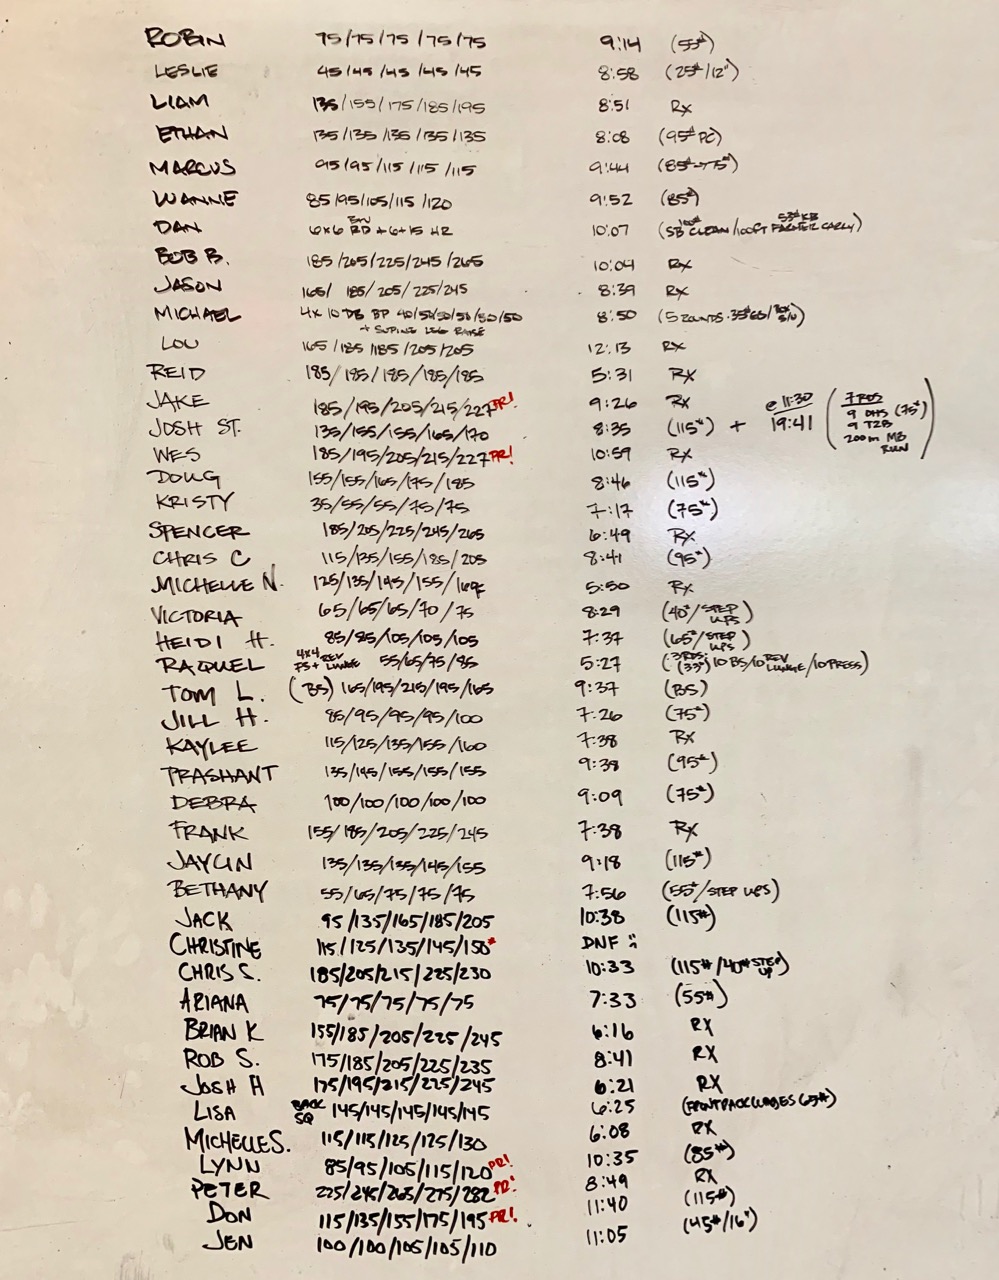 ROBIN 75/75/75/75/75 9:14 (55#)
LESLIE 45/45/45/45/45 8:58 (25#/12")
LIAM 135/155/175/185/195 8:51 Rx
ETHAN 135/135/135/135/135 8:08 (95# PC)
MARCUS 95/95/115/115/115 9:44 (85#→75#)
WANNIE 85/95/105/115/120 9:52 (85#)
DAN 6x6 RD + 6+15 HR 10:07 (SB 100# CLEAN/100FT 53#KB FARMER CARRY)
BOB B. 185/205/225/245/265 10:04 Rx
JASON 165/185/205/225/245 8:39 Rx
MICHAEL 4x10 DB BP 40/50/50/50/50/50 8:50 (5 ROUNDS
+ SUPINE LEG RAISE
LOU 165/185/185/205/205 12:13 Rx
REID 185/185/185/185/185 5:31 Rx
JAKE 185/195/205/215/227 PR! 9:26 Rx
JOSH ST. 135/155/155/165/170 8:35 (115#) + @ 11:30 19:41 (7 RDS 9 OHS (75#) 9 T2B 200m MB RUN)
WES 185/195/205/215/227 PR! 10:59 Rx
DOUG 155/155/165/175/185 8:46 (115#)
KRISTY 35/55/55/75/75 7:17 (75#)
SPENCER 185/205/225/245/265 6:49 Rx
CHRIS C 115/135/155/185/205 8:41 (95#)
MICHELLE N. 125/135/145/155/ 5:50 Rx
VICTORIA 65/65/65/70/75 8:29 (40#/STEP UPS)
HEIDI H. 85/85/105/105/105 7:37 (65#/STEP UPS)
RAQUEL 4x4 FS + REV LUNGE 55/65/75/85 5:27 (3 RDS: (33#) 10 BS/10 REV LUNGE/10 PRESS)
TOM L. (BS) 165/195/215/195/165 9:37 (BS)
JILL H. 85/95/95/95/100 7:26 (75#)
KAYLEE 115/125/135/155/160 7:38 Rx
PRASHANT 135/145/155/155/155 9:39 (95#)
DEBRA 100/100/100/100/100 9:09 (75#)
FRANK 155/185/205/225/245 7:38 Rx
JAYLIN 135/135/135/145/155 9:18 (115#)
BETHANY 55/65/75/75/75 7:56 (55#/STEP UPS)
JACK 95/135/165/185/205 10:38 (115#)
CHRISTINE 115/125/135/145/150* DNF :(
CHRIS S. 185/205/215/225/230 10:33 (115#/40# STEP UP)
ARIANA 75/75/75/75/75 7:33 (55#)
BRIAN K 155/185/205/225/245 6:16 RX
ROB S. 175/185/205/225/235 8:41 RX
JOSH H 175/195/215/225/245 6:21 RX
LISA BACK SQ 145/145/145/145/145 6:25 (FRONT RACK LUNGES 65#)
MICHELLE S. 115/115/125/125/130 6:08 RX
LYNN 85/95/105/115/120 PR! 10:35 (85#)
PETER 225/245/265/275/282 PR! 8:49 RX
DON 115/135/155/175/195 PR! 11:40 (115#)
JEN 100/100/105/105/110 11:05 (45#/16")